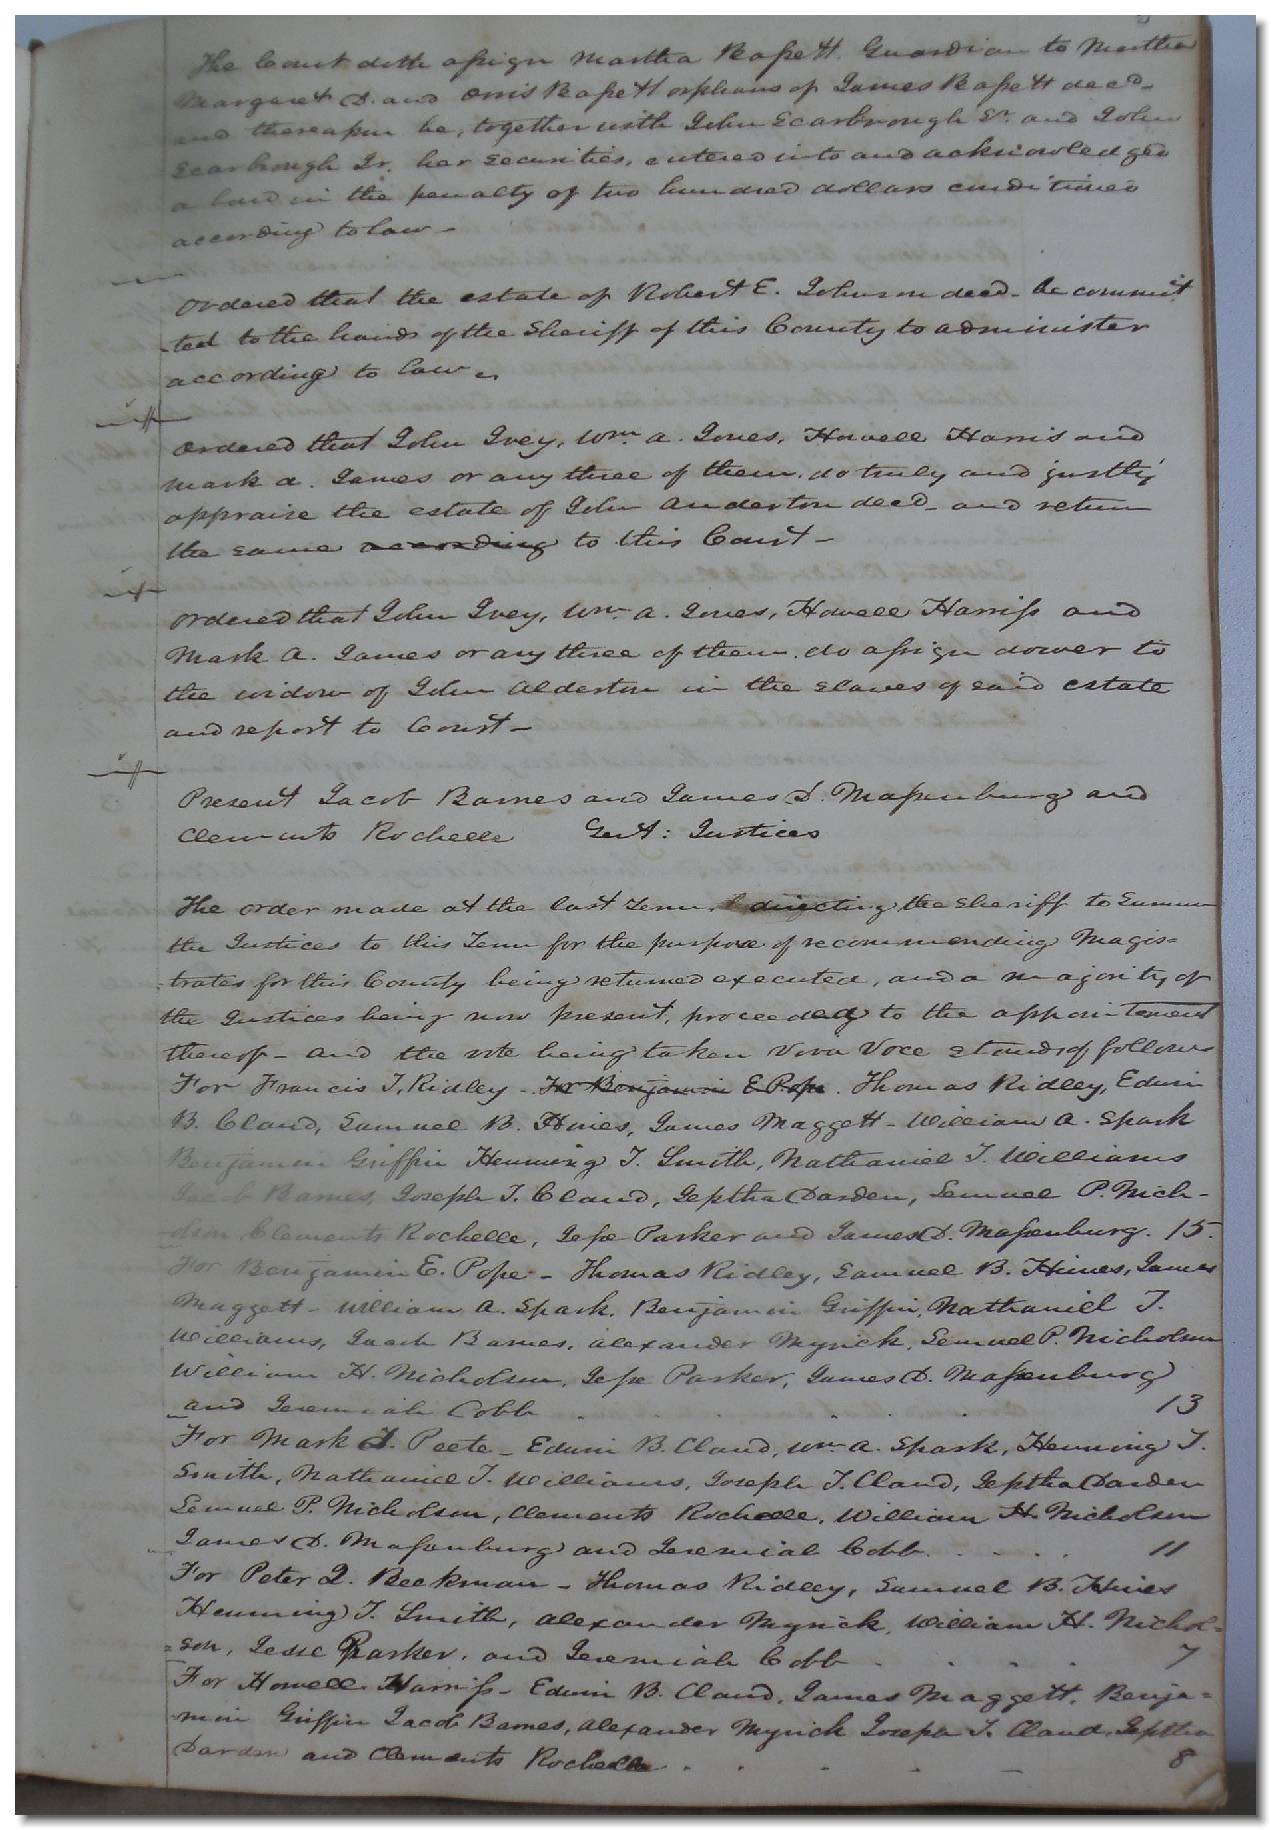 The Court doth assign Martha Bassett Guardian to Martha
Margaret D. and Orris Bassett orphans of James Bassett decd.
and thereupon he, together with John Scarbrough Sr. and John
Scarbrough Jr. her securities, entered into and acknowledged
a bond in the penalty of two hundred dollars conditioned
according to law -
Ordered that the estate of Robert E. Johnson decd. be commit
-ted to the hands of the Sheriff of this County to administer
according to law.
Ordered that John Ivey, Wm. A. Jones, Howell Harris and
Mark A. James or any three of them, do truly and justly
appraise the estate of John Anderton decd. and return
the same according to this Court -
Ordered that John Ivey, Wm. A. Jones, Howell Harriss and
Mark A. James or any three of them, do assign dower to
the widow of John Alderton in the slaves of said estate
and report to Court -
Present Jacob Barnes and James D. Massenburg and
Clements Rochelle Gent: Justices
The order made at the last Term, directing the Sheriff to Summon
the Justices to this Term for the purpose of recommending Magis=
trates for this County being returned executed, and a majority of
the Justices being now present, proceeded to the appointment
thereof - and the vote being taken Viva Voce stands as follows
For Francis T. Ridley - For Benjamin E. Pope. Thomas Ridley, Edwin
B. Claud, Samuel B. Hines, James Maggett - William A. Spark
Benjamin Griffin Henning T. Smith, Nathaniel T. Williams
Jacob Barnes, Joseph T. Claud, Jeptha Darden, Lemuel P. Nich-
olson Clements Rochelle, Jesse Parker and James D. Massenburg. 15.
For Benjamin E. Pope - Thomas Ridley, Samuel B. Hines, James
Maggett - William A. Spark, Benjamin Griffin, Nathaniel T.
Williams, Jacob Barnes, Alexander Myrick, Lemuel P. Nicholson
William H. Nicholson, Jesse Parker, James D. Massenburg
and Jeremiah Cobb . . . . 13
For Mark J. Peete - Edwin B. Claud, Wm. A. Spark, Henning T.
Smith, Nathaniel T. Williams, Joseph T. Claud, Jeptha Darden
Lemuel P. Nicholson, Clements Rochelle, William H. Nicholson
James D. Massenburg and Jeremiah Cobb . . . . 11
For Peter J. Beekman - Thomas Ridley, Samuel B. Hines
Henning T. Smith, Alexander Myrick, William H. Nichol=
=son, Jesse Parker, and Jeremiah Cobb . . . . 7
For Howell Harriss - Edwin B. Claud, James Maggett, Benja=
-min Griffin Jacob Barnes, Alexander Myrick Joseph T. Claud, Jeptha
Darden and Clements Rochelle . . . . 8